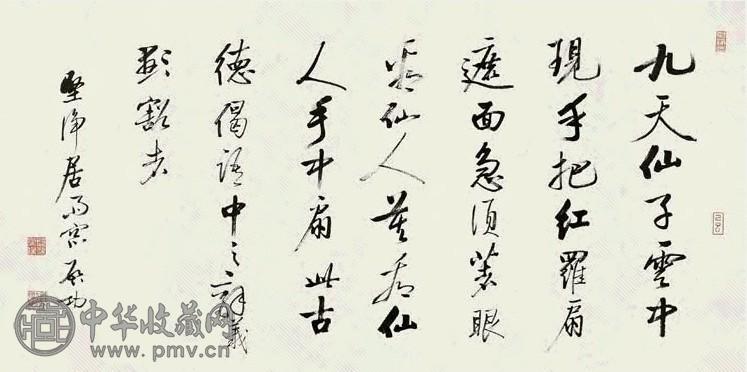 九天仙子雲中
現手把紅羅扇
遮面急須著眼
看仙人莫看仙
人手中扇此古
德偈語中之辭義
顯豁者
堅淨居雨窗 啟功
中华收藏网
www.pmv.cn